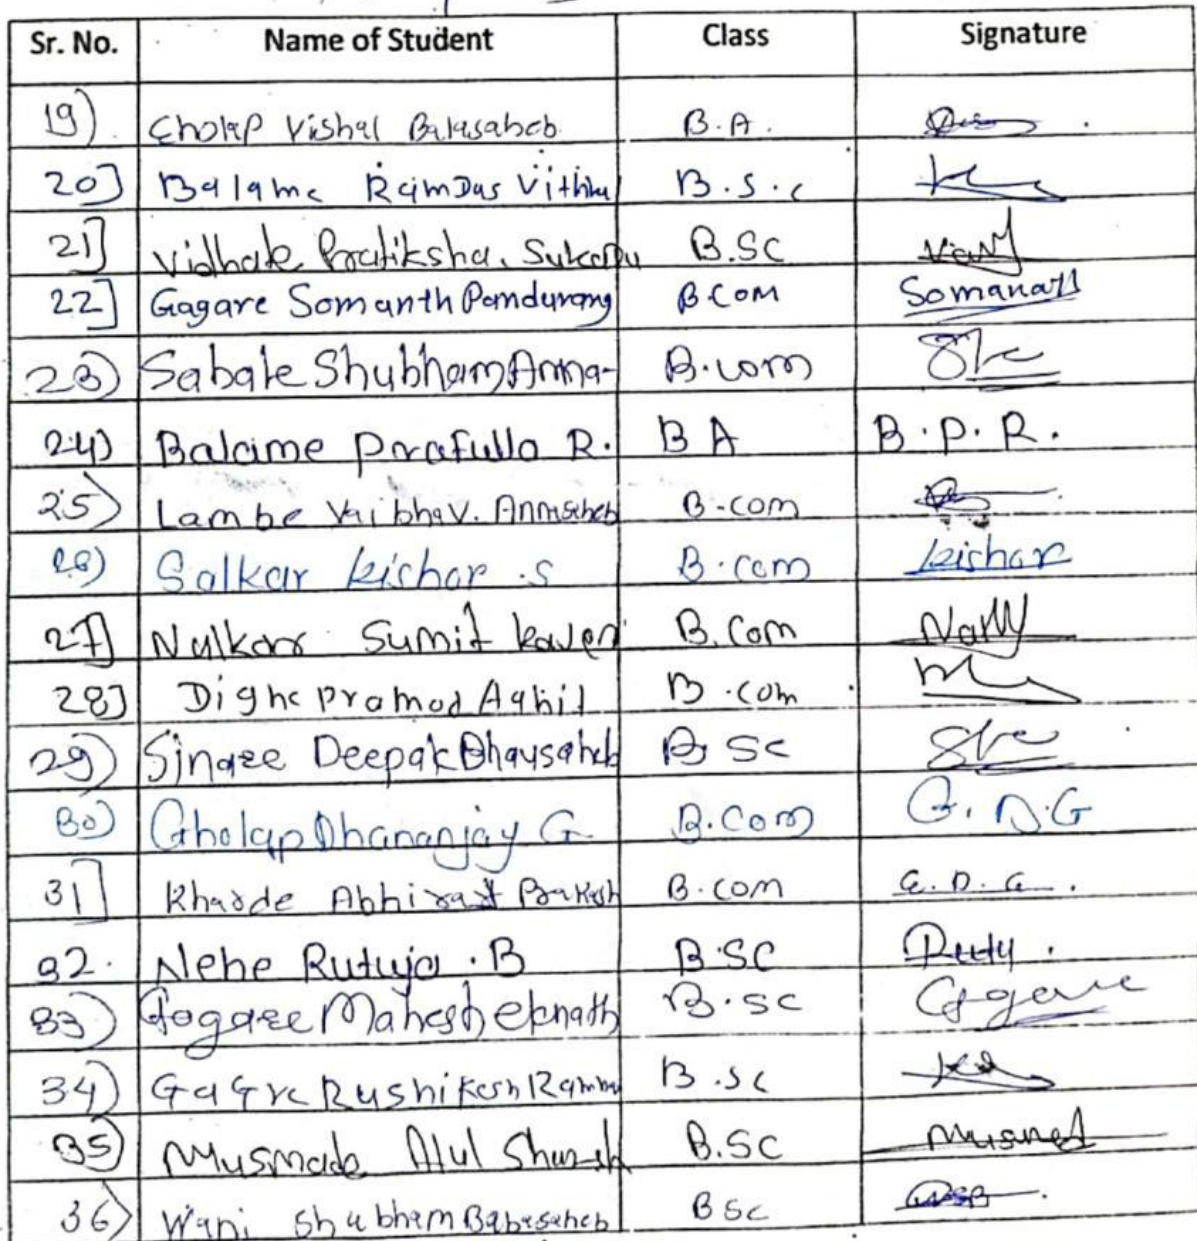 Sr. No. Name of Student Class Signature
19) Gholap Vishal Balasaheb B.A.
20] Balame Ramdas Vithhal B.S.c
21] Vidhate Pratiksha. Sukadu B.SC
22] Gagare Somanth Pandurang B.COM Somanath
23) Sabale Shubham Anna- B.com
24) Balame Prafulla R. B A B.P.R.
25) Lambe Vaibhav. Annasaheb B-com
26) Salkar kishor .S B.com kishor
27] Nalkar Sumit B.Com
28] Dighe Pramod B.com
29) Singre Deepak Bhausaheb B SC
30) Gholap Dhananjay G B.Com G.D.G
31] Kharde Abhiraj Prakash B.COM G.D.G.
32. Nehe Rutuja . B B.SC Rutu.
33) Gogare Mahesh eknath B.SC Gogare
34) GaGre Rushikesh B.SC
35) Musmade Atul B.SC Musmad
36) Wani Shubham Babasaheb BSc